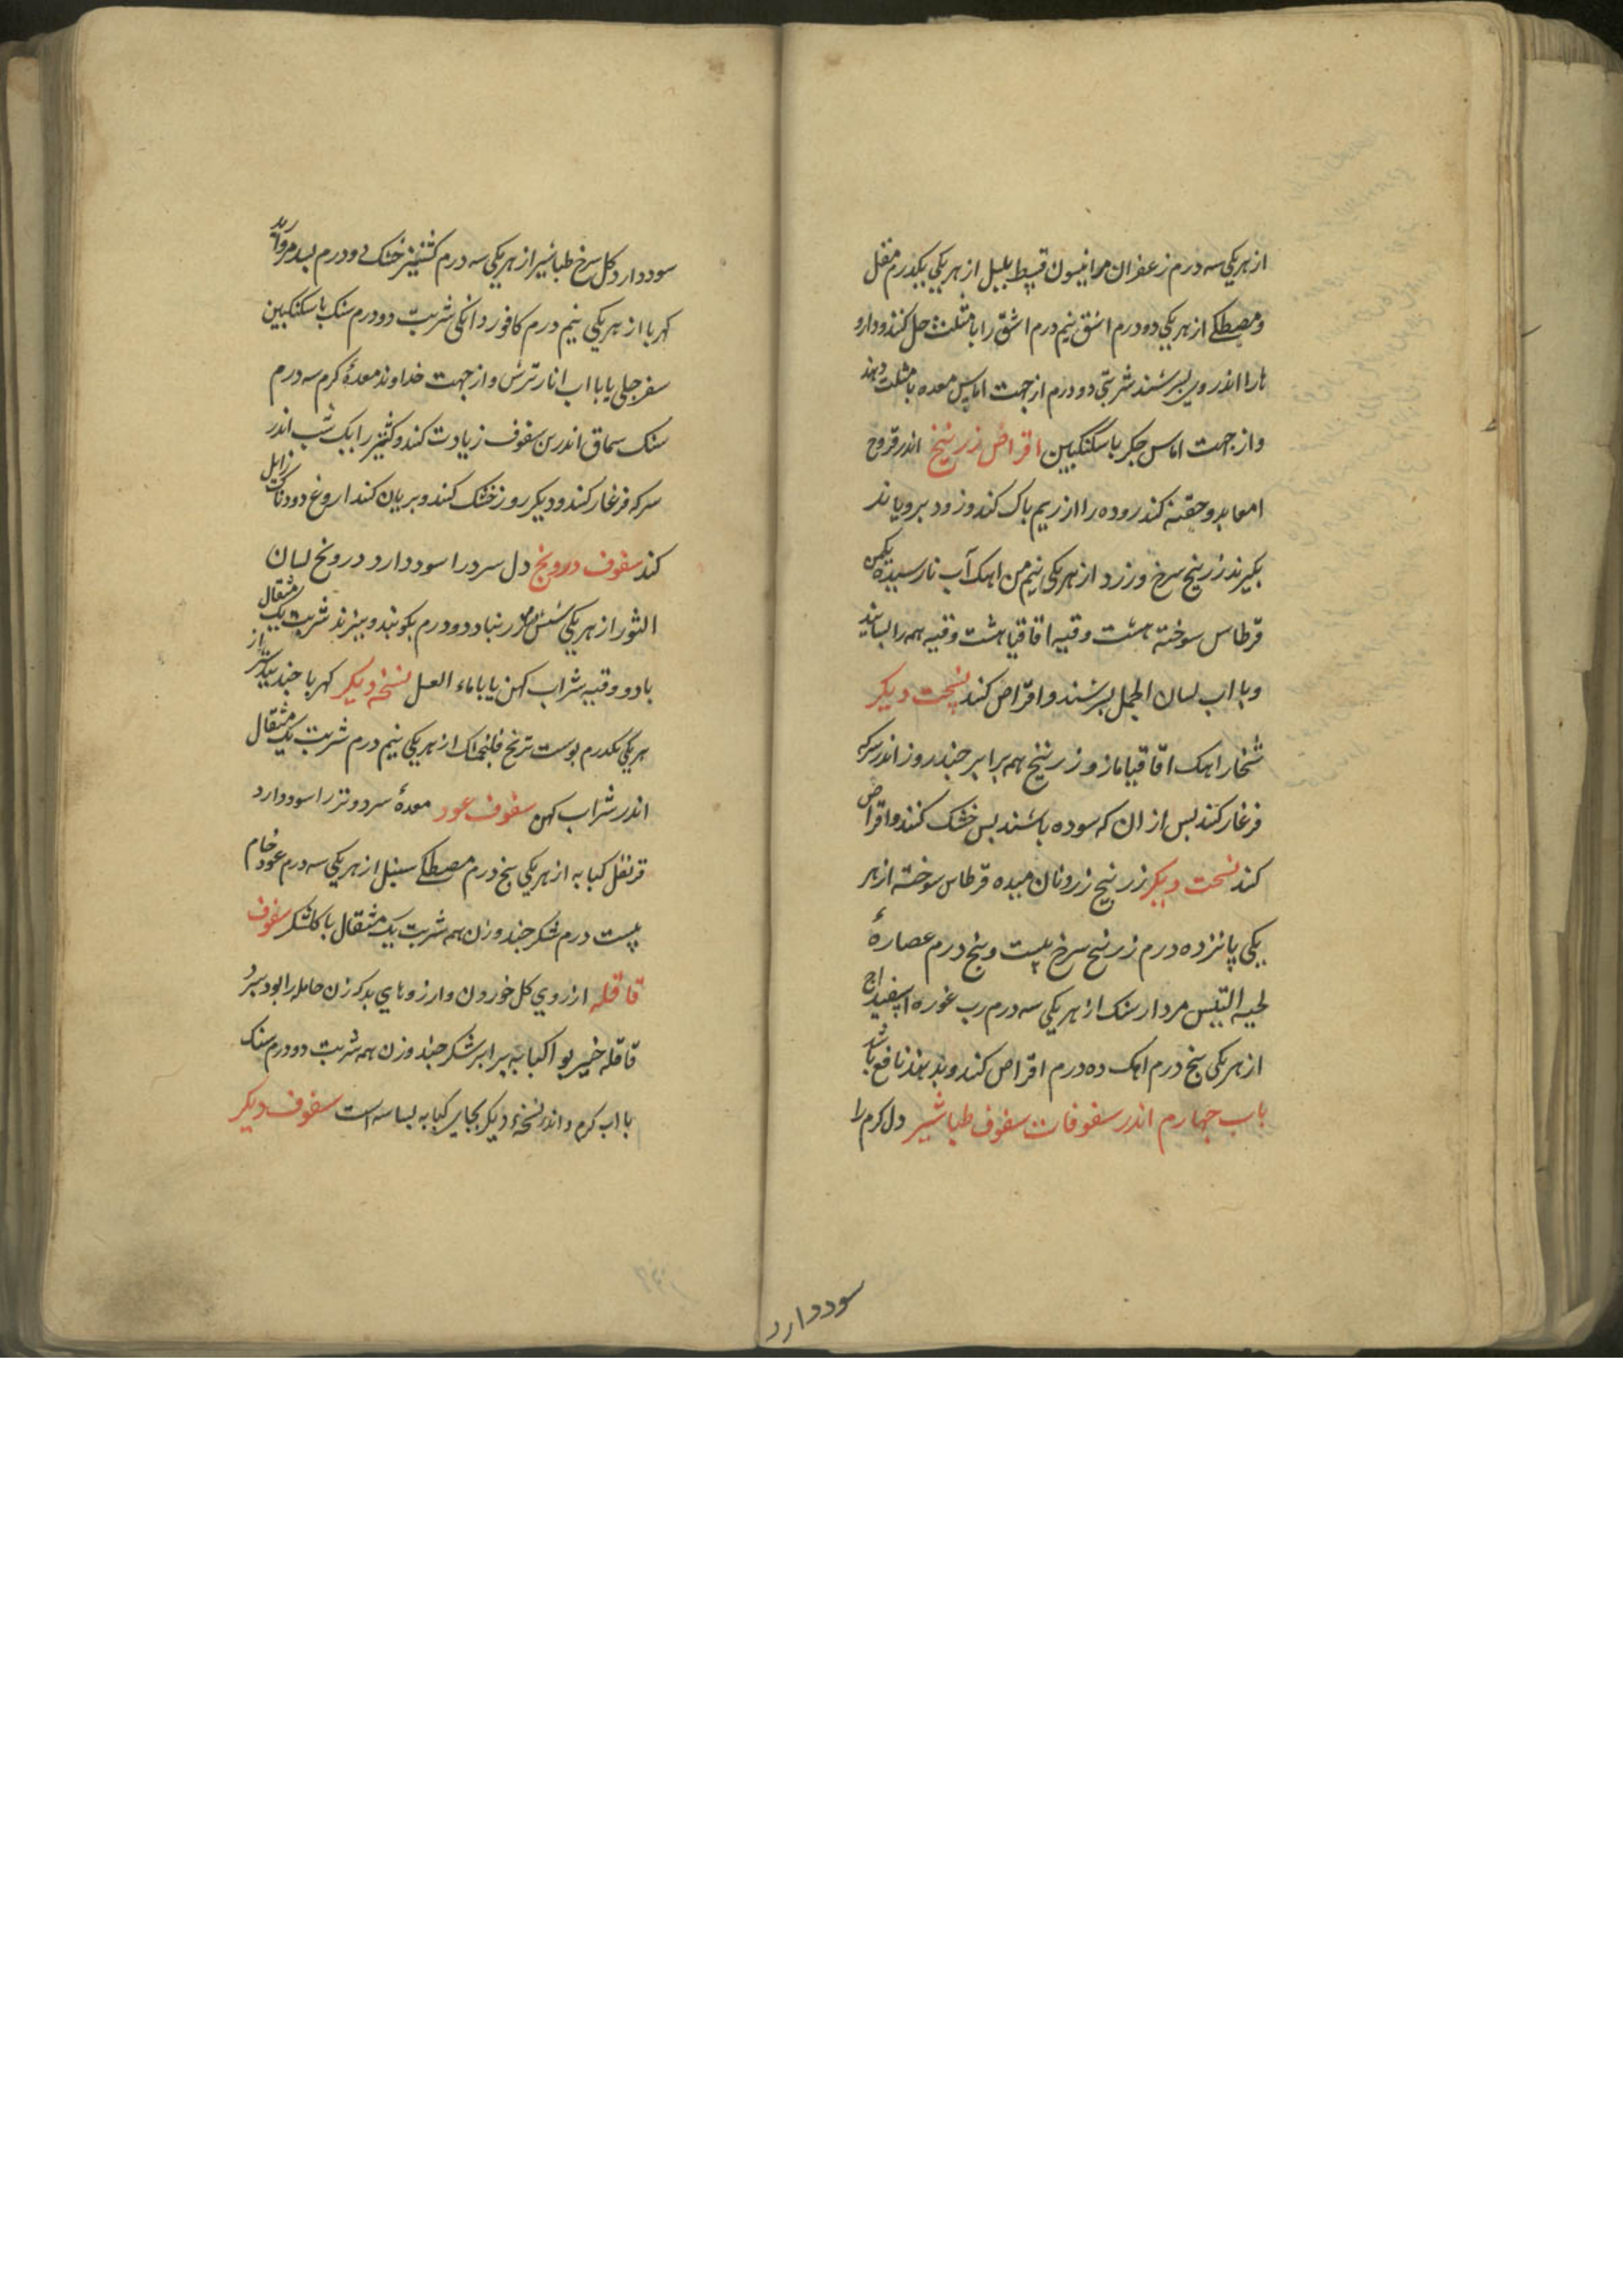 از هریکی سه درم زعفران مر انیسون قسط بلبل از هریکی یکدرم مقل
و مصطکے از هریکی دو درم اشق نیم درم اشق را با مثلث حل کنند و دارو
هارا اندر وی بسرشند شربتی دو درم از جهت اماس معده با مثلث دهند
و از جهت اماس جکر با سکنکبین اقراص زرنیخ اندر قروح
امعا بدو حقنه کند روده را از ریم باک کند و زود برویاند
بکیرند زرنیخ سرخ و زرد از هریکی نیم من اهک آب نارسیده یکمن
قرطاس سوخته هشت وقیه اقاقیا هشت وقیه همه را بسایند
و با اب لسان الحمل بسرشند و اقراص کند نسخت دیکر
شخار اهک اقاقیا مازو زرنیخ همه برابر جند روز اندر سرکه
فرغار کند بس از ان که سوده باشند بس خشک کنند و اقراص
کند نسخت دیکر زرنیخ زرد و نان میده قرطاس سوخته از هر
یکی پانزده درم زرنیخ سرخ بیست و پنج درم عصارۀ
لحیه التیس مردارسنک از هریکی سه درم رب غوره اسفیداج
از هریکی پنج درم اهک ده درم اقراص کند و بدهند نافع باشد
باب جهارم اندر سفوفات سفوف طباشیر دل کرم را
سوددارد
سوددارد کل سرخ طباشیر از هریکی سه درم کشنیز خشک دو درم بسد مروارید
کهربا از هریکی نیم درم کافور دانکی شربت دو درم سنک با سکنکبین
سفرجلی یا با اب انار ترش و از جهت خداوند معدۀ کرم سه درم
سنک سماق اندرین سفوف زیادت کند و کشنیز را یک شب اندر
سرکه فرغار کند و دیکر روز خشک کند و بریان کند اروغ دودناک زایل
کند سفوف درونج دل سرد را سوددارد درونج لسان
الثور از هریکی شش درم زرنباد دو درم بکوبند و ببزند شربت یک مثقال
با دو وقیه شراب کهن یا با ماء العسل نسخه دیکر کهربا جندبیدستر از
هریکی یکدرم بوست ترنج فلنجمشک از هریکی نیم درم شربت یک مثقال
اندر شراب کهن سفوف عود معدۀ سرد و تر را سوددارد
قرنفل کبابه از هریکی پنج درم مصطکے سنبل از هریکی سه درم عود خام
بیست درم شکر جند وزن همه شربت یک مثقال با کلشکر سفوف
قاقله ارزوی کل خوردن و ارزوهاي بد که زن حامله را بود ببرد
قاقله خیربوا کبابه برابر شکر جند وزن همه شربت دو درم سنک
با اب کرم و اندر نسخۀ دیکر بجای کبابه بسباسه است سفوف دیکر